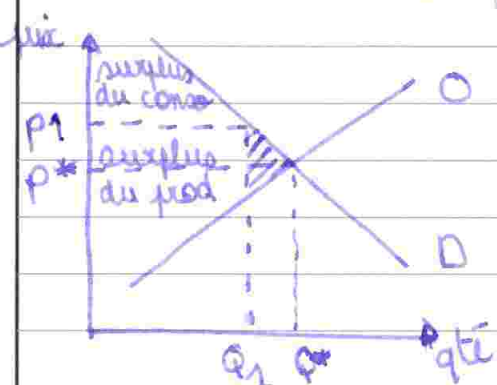 prix
surplus
du conso
O
P1
P*
surplus
du prod
D
Q1 Q* qté